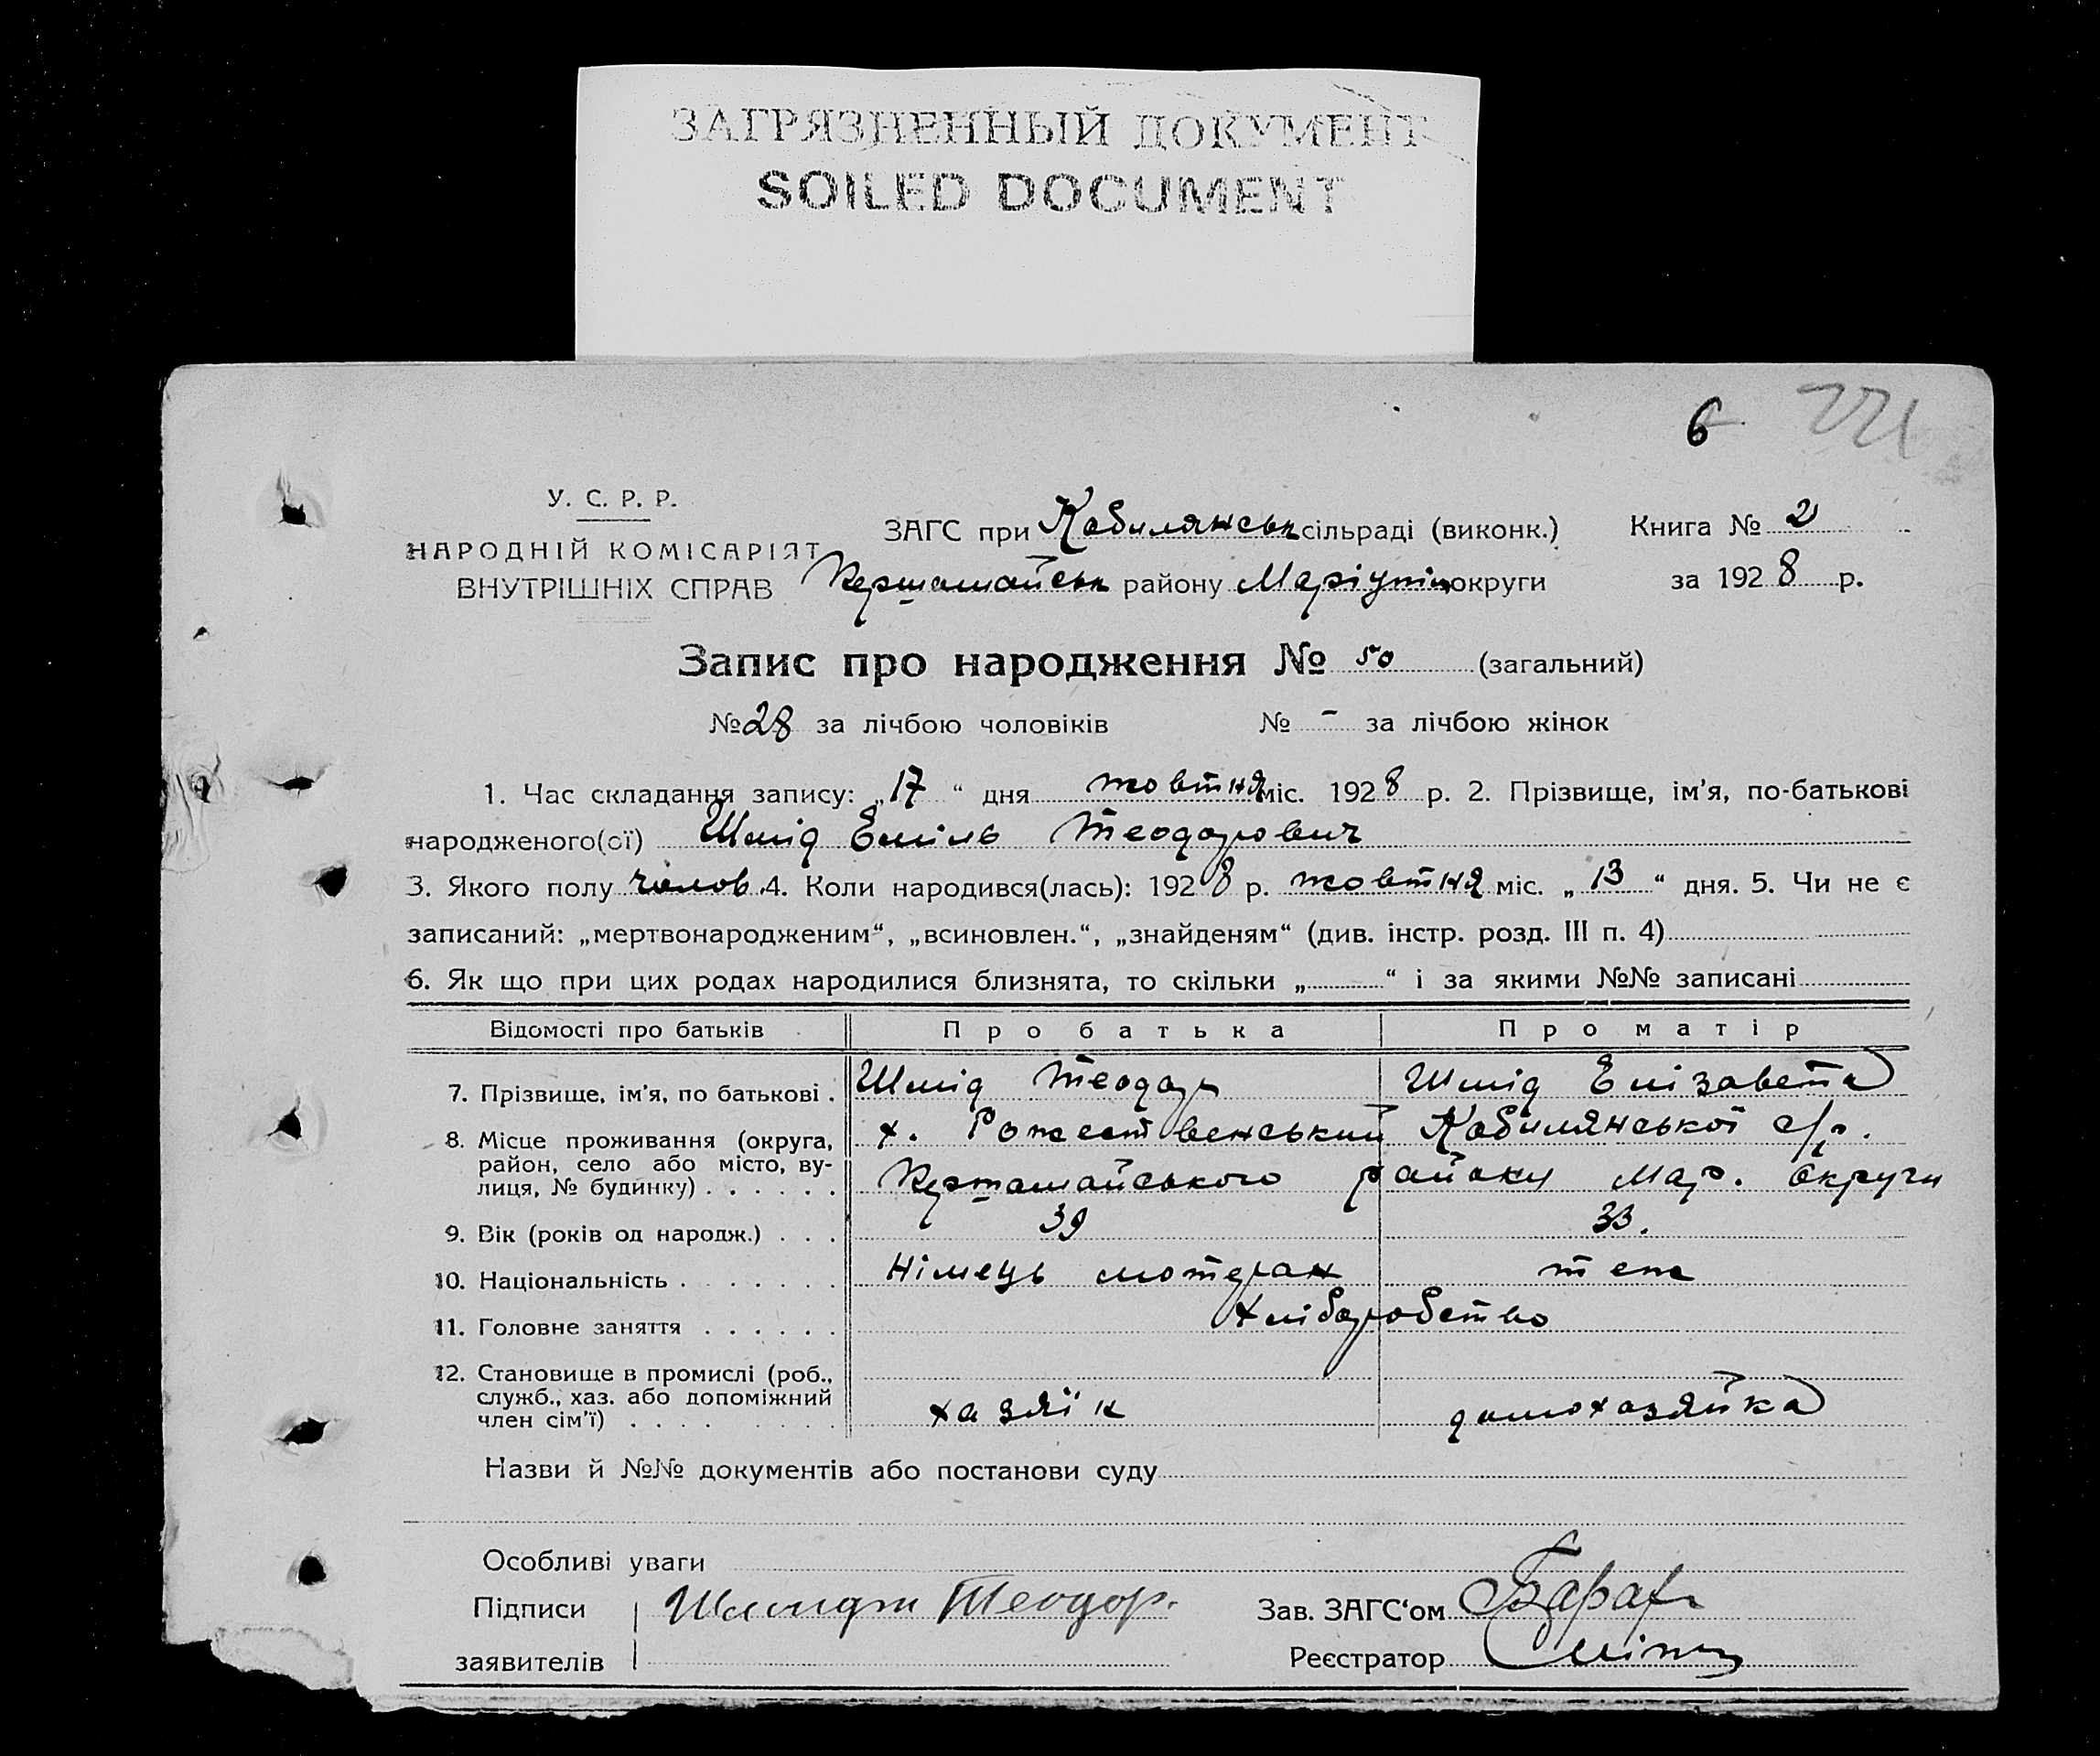 ЗАГРЯЗНЕННЫЙ ДОКУМЕНТ
SOILED DOCUMENT
6 221
У. С. Р. Р.
НАРОДНІЙ КОМІСАРІЯТ
ВНУТРІШНІХ СПРАВ
ЗАГС при Кобилянськ сільраді (виконк.) Книга № 2
району Маріупіль округи за 1928 р.
Запис про народження № 50 (загальний)
№ 28 за лічбою чоловіків № - за лічбою жінок
1. Час складання запису: „17“ дня жовтня міс. 1928 р. 2. Прізвище, ім'я, по-батькові
народженого(ої) Шмід Еміль Теодорович
3. Якого полу чолов. 4. Коли народився(лась): 1928 р. жовтня міс. „13“ дня. 5. Чи не є
записаний: „мертвонародженим“, „всиновлен.“, „знайденям“ (див. інстр. розд. III п. 4)
6. Як що при цих родах народилися близнята, то скільки „ “ і за якими №№ записані
Відомості про батьків Про батька Про матір
7. Прізвище, ім'я, по батькові . Шмід Теодор Шмід Елізавета
8. Місце проживання (округа, х. Рожественський Кобилянської с/р.
район, село або місто, ву-
лиця, № будинку) . . . . . . району Мар. округи
9. Вік (років од народж.) . . . 39 33.
10. Національність . . . . . . . Німець лютеран теж
11. Головне заняття . . . . . . Хліборобство
12. Становище в промислі (роб.,
служб., хаз. або допоміжний
член сім'ї) . . . . . . . . . хазяїн домохазяйка
Назви й №№ документів або постанови суду
Особливі уваги
Підписи Шмидт Теодор. Зав. ЗАГС'ом
заявителів Реєстратор